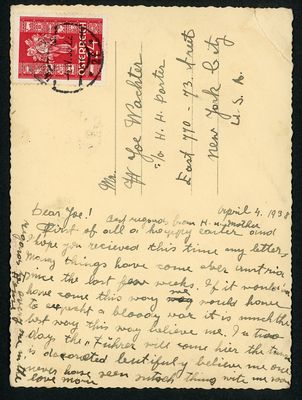 ÖSTERREICH
24
Mr. Joe Wachter
c/o H. H. Porter
East 770 - 73. Street
New York City
U. S. A.
April 4. 1938
Dear Joe!
Best regards from H. my mother
First of all a happy easter and
I hope you recieved this time my letters
Many things have come over austria
since the last few weeks. If it wouldn
have come this way we would have
to expect a bloody war it is much the
best way this way believe me. In two
day the "Führer will come hier the town
is decorated beutifuly believe me one
never have seen such thing with me now
love more